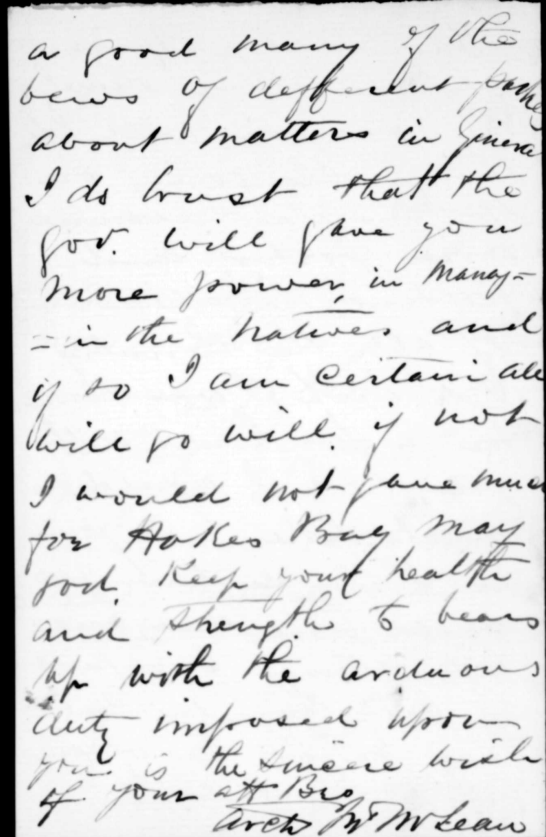 a good many of the
bews of defferent parties
about matters in Ginera
I do trust that the
gov. will gave you
more power, in Manag-
=in the natives and
if so I am certain all
will go will. if not
I would not gave much
for Hakes Bay may
god. Keep your health
and strength to bear
up with the arduous
duty imposed upon
you is the sincere wish
of your aff Bro
Arch Mc McLean